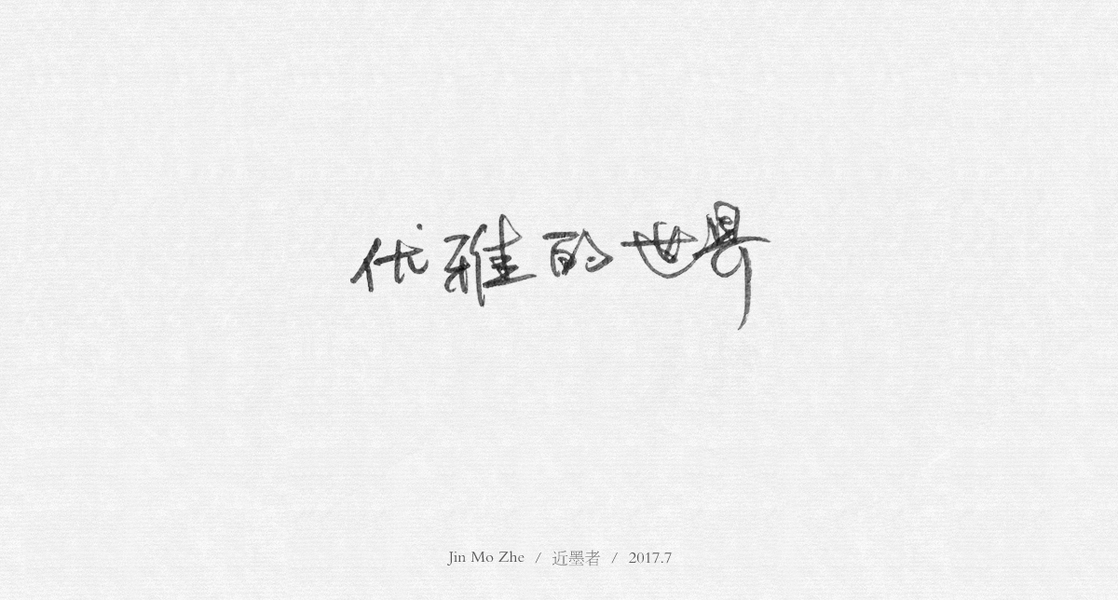 优雅的世界
Jin Mo Zhe / 近墨者 / 2017.7